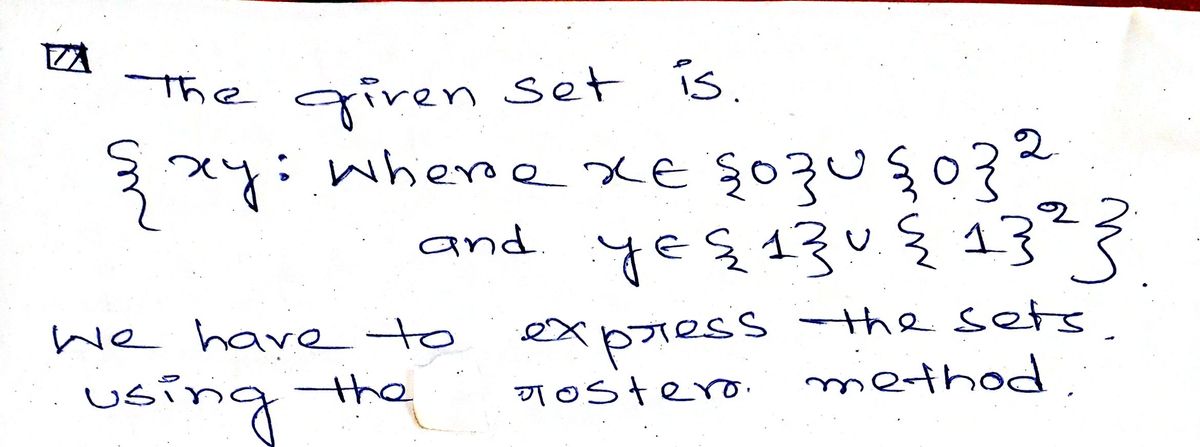 The given set is.
{xy: where x∈ {0}∪{0}²
and y∈{1}∪{1}²}.
We have to express the sets.
using the roster method.